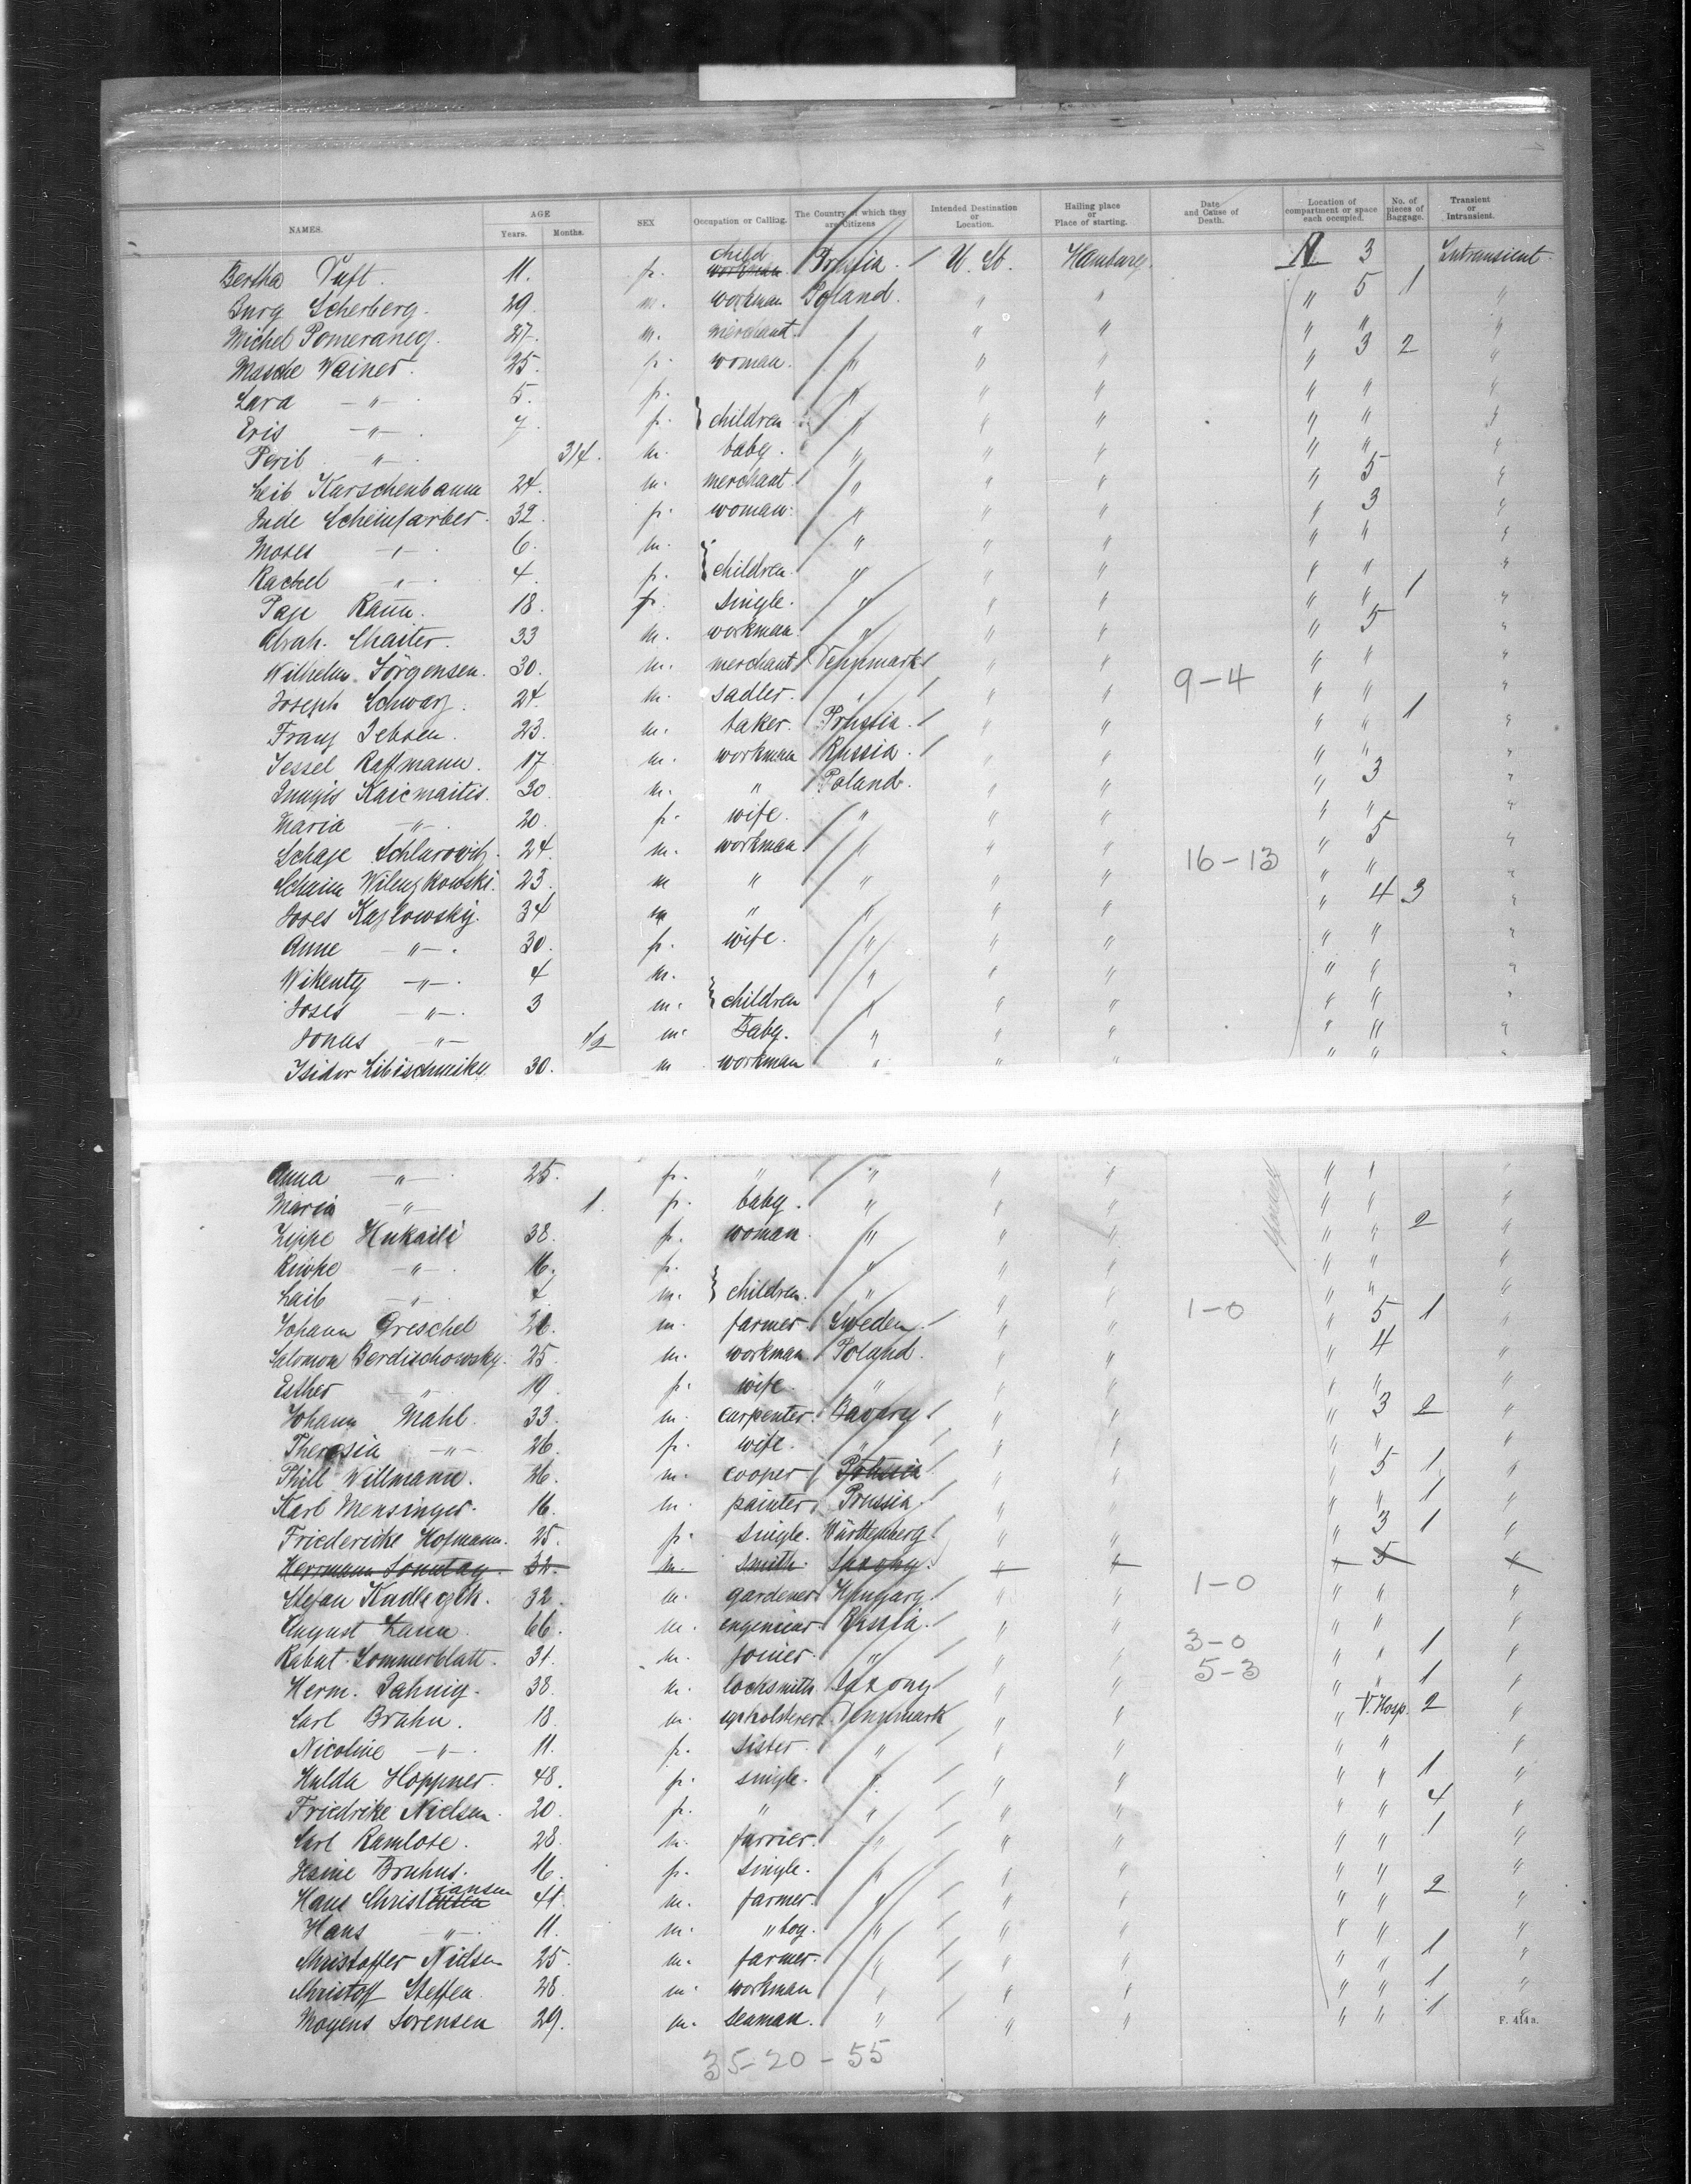 NAMES. AGE Years. Months. SEX Occupation or Calling. The Country of which they are Citizens Intended Destination or Location. Hailing place or Place of starting. Date and Cause of Death. Location of compartment or space each occupied. No. of pieces of Baggage. Transient or Intransient.
child
Bertha 11. f. workman Prussia. U. St. Hamburg. 3 Intransient
Burg Scherberg. 29. m. workman Poland. " " " 5 1 "
Michel Pomeranez. 27. m. merchant. " " " " "
Masche Wainer. 25. f. woman. " " " " 3 2 "
Lara -"- 5. f. " " " " " "
Eris -"- 7. f. children " " " " " "
Peril -"- 3/4. m. baby. " " " " " "
Leib Karschenbaum 24. m. merchant. " " " " 5 "
Jude Scheinfarber. 32. f. woman. " " " " 3 "
Moses -"- 6. m. " " " " " "
Rachel -"- 4. f. children. " " " " " "
18. f. single. " " " " " 1 "
Abrah. Chaiter. 33 m. workman. " " " " 5 "
Wilhelm Jörgensen. 30. m. merchant Dennmark " " " " "
Joseph Schwarz. 24. m. sadler. " " " 9-4 " " "
Franz Jebsen. 23. m. baker. Prussia. " " " " 1 "
Jessel Raffmann. 17. m. workman Russia. " " " " "
Kaicmaitis. 30. m. " Poland. " " " 3 "
Maria -"- 20. f. wife. " " " " " "
Schaje Schlurowitz. 24. m. workman " " " 16-13 " 5 "
Schaim Wilenzkowski. 23. m " " " " " " "
Joses Kazlowsky. 34 m " " " " " 4 3 "
Anne -"- 30. f. wife. " " " " " "
Wikenty -"- 4 m. " " " " " "
Joses -"- 3 m. children " " " " " "
Jonas -"- 1/2 m. Baby. " " " " " "
Isidor 30. m workman " " " " " "
Anna -"- 25. f. " " " " " " "
Maria -"- 1. f. baby. " " " " " "
Zippe Hukaile 38. f. woman. " " " " " 2 "
Riwke -"- 16. f. " " " " " "
Laib -"- m. children. " " " " " "
Johann Greschel m. farmer. Sweden. " " 1-0 " 5 1 "
Salomon Berdischowsky. 25. m. workman Poland. " " " 4 "
Esther -"- 19. f. wife. " " " " " "
Johann Mahl. 33. m. carpenter. Bavary. " " " 3 2 "
Theresia -"- 26. f. wife. " " " " " "
Phill Willmann. 26. m. cooper " " " 5 1 "
Karl Mensinger. 16. m. painter. Prussia. " " " " 1 "
Friedericke Hofmann. 25. f. single. Württemberg. " " " 3 1 "
Herrmann Sonntag. 32. m. smith. Saxony. " " " 5 "
Stefan 32. m. gardener Hungary. " " 1-0 " " "
August Zann. 66. m. engenieer Russia. " " " " "
Rabat Sommerblatt. 31. m. joiner. " " " 3-0 " " 1 "
Herm. Jahnig. 38. m. locksmith. Saxony " " 5-3 " " 1 "
Carl Bruhn. 18. m. upholsterer. Dennmark " " " V. Hosp. 2 "
Nicoline -"- 11. f. sister. " " " " " "
Hulda Hoppner. 48. f. single. " " " " " 1 "
Friedrike Nielsen. 20. f. " " " " " " 4 "
Carl Ramlose. 28. m. farrier. " " " " " 1 "
Bruhns. 16. f. single. " " " " " "
Hans Christiansen 41. m. farmer. " " " " " 2 "
Hans " 11. m. " boy. " " " " " "
Christoffer Nielsen 25. m. farmer. " " " " " 1 "
Christoff Steffen. 28. m. workman " " " " " 1 "
Mogens Sorensen 29. m. seaman. " " " " " 1 "
F. 414a.
35-20-55